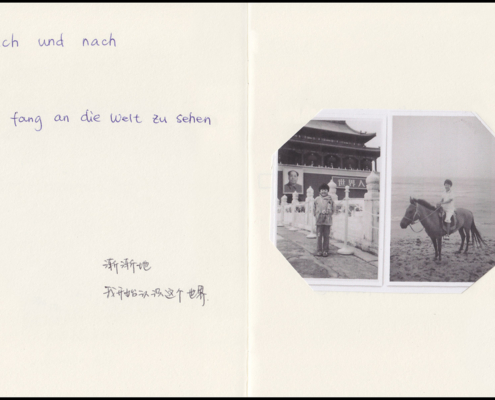 ch und nach
fang an die Welt zu sehen
渐渐地
我开始认识这个世界.
世界人